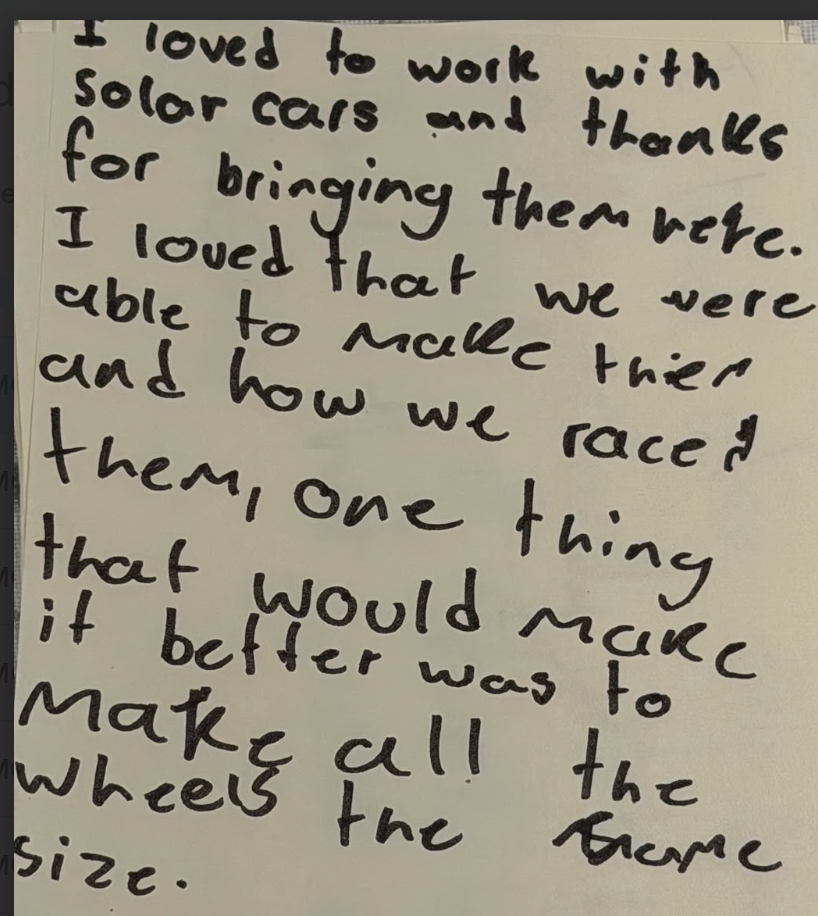 I loved to work with
solar cars and thanks
for bringing them here.
I loved that we were
able to make thier
and how we raced
them, one thing
that would make
it better was to
make all the
wheels the same
size.